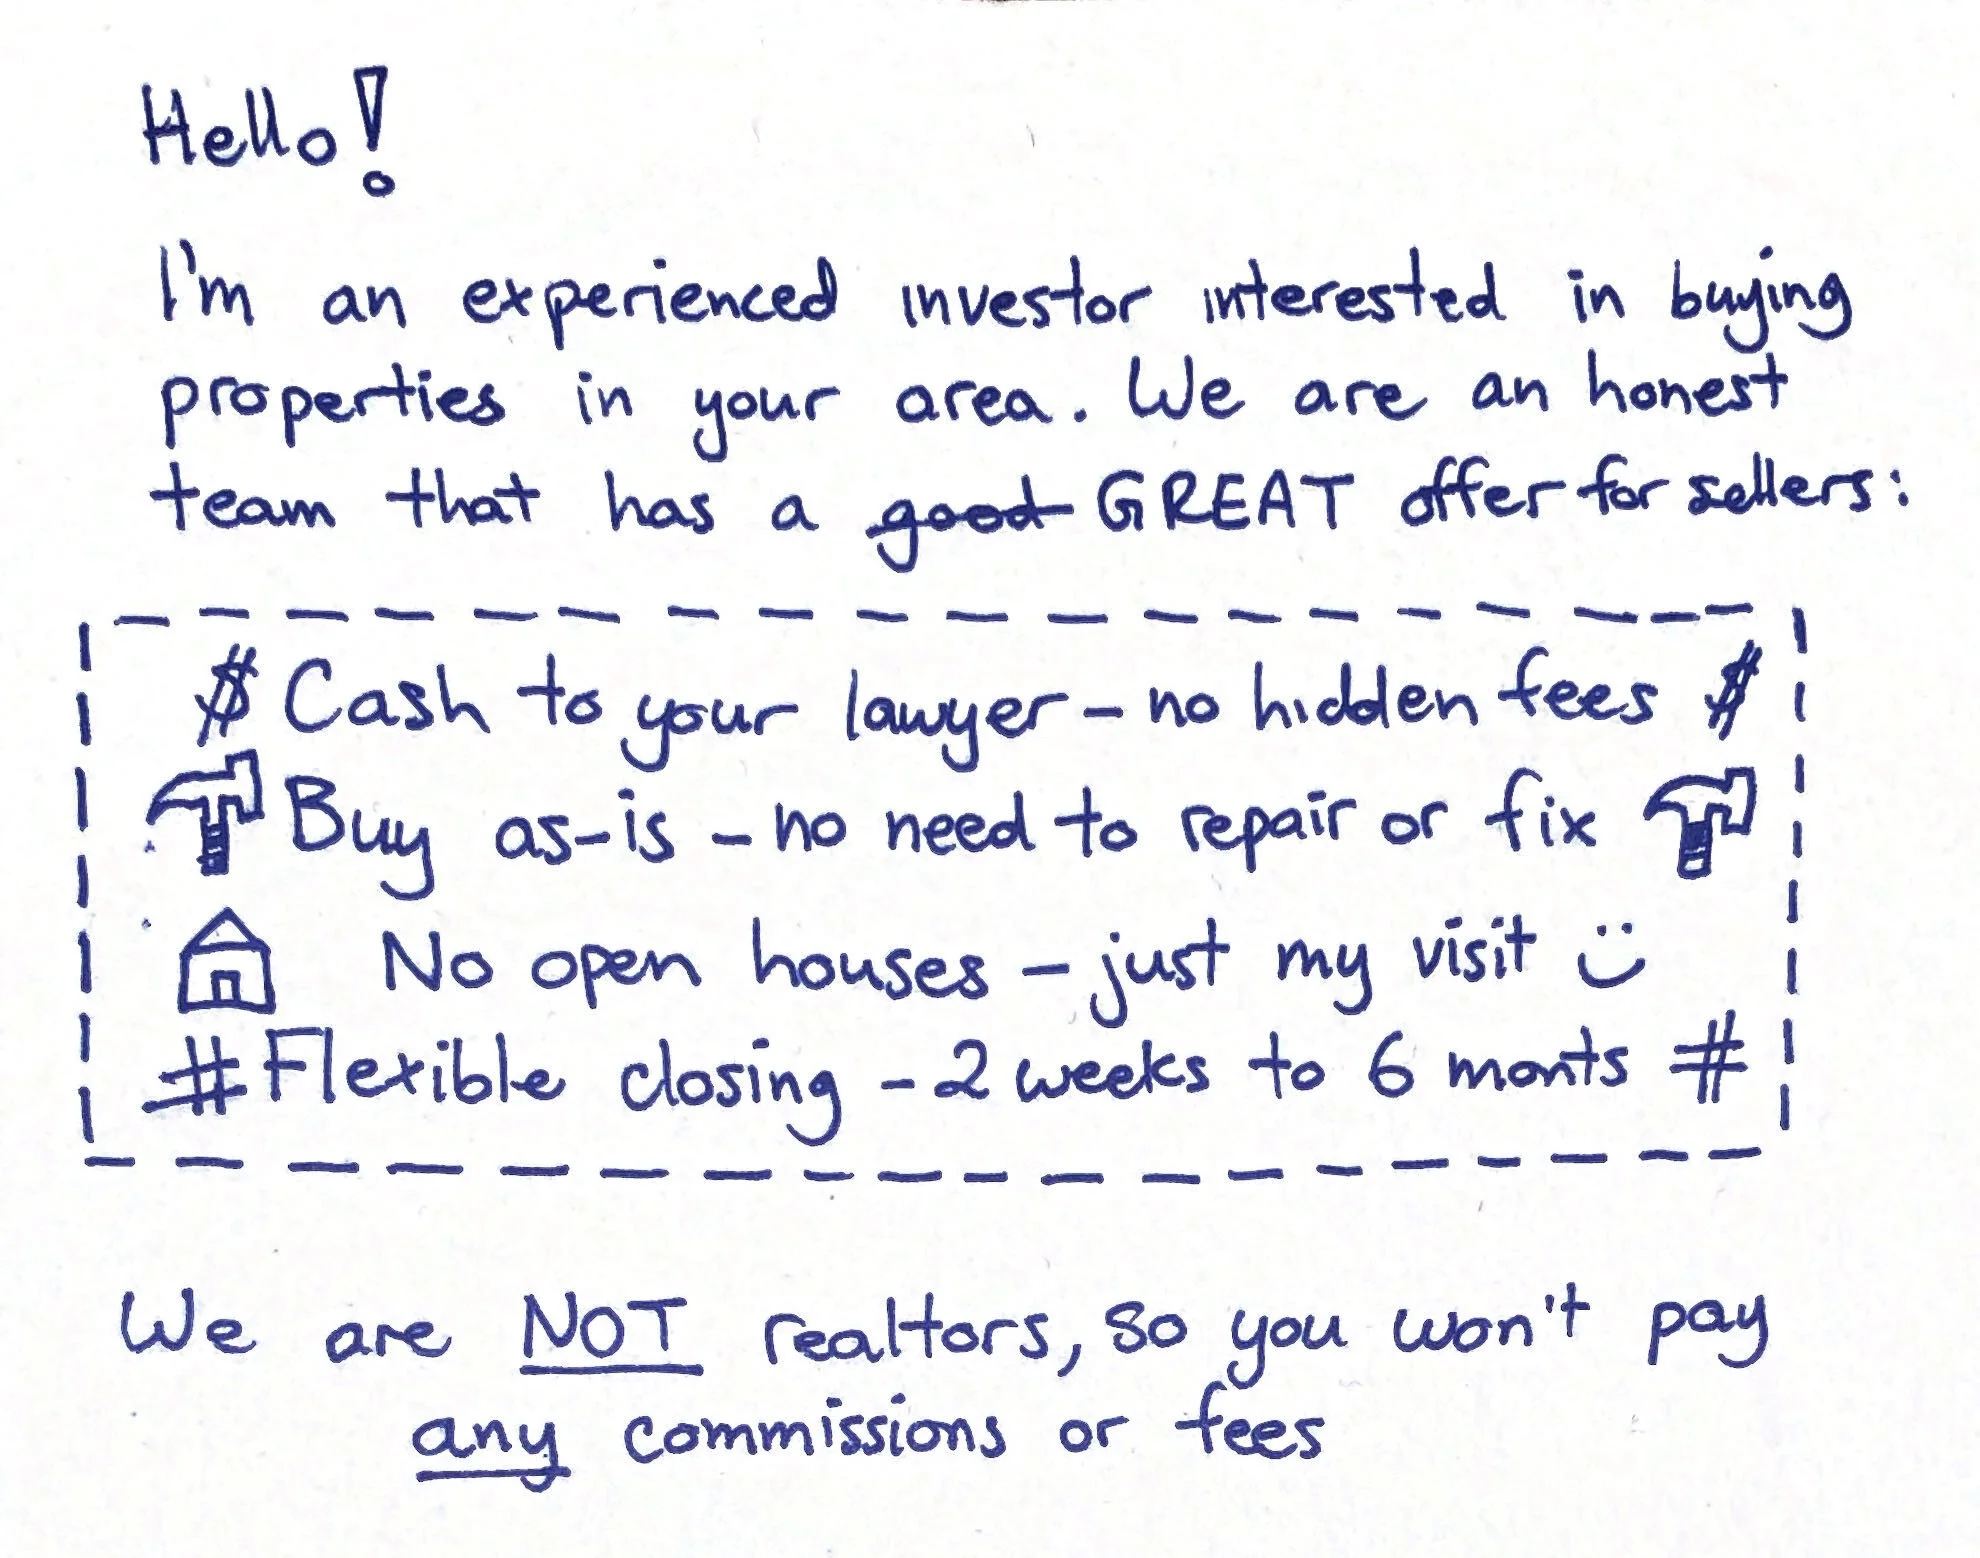 Hello!
I'm an experienced investor interested in buying
properties in your area. We are an honest
team that has a good GREAT offer for sellers:
$ Cash to your lawyer - no hidden fees $
Buy as-is - no need to repair or fix
No open houses - just my visit :)
# Flexible closing - 2 weeks to 6 monts #
We are NOT realtors, so you won't pay
any commissions or fees